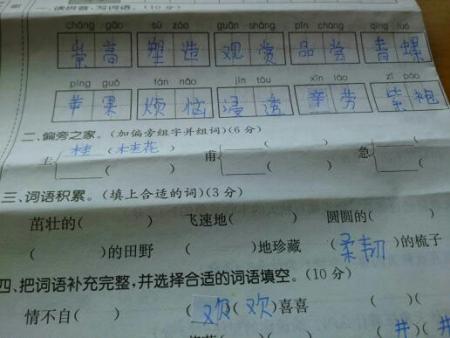 一、读拼音,写词语。(10分)
chóng gāo sù zào guān shǎng pǐn cháng qīng luó
崇高 塑造 观赏 品尝 青螺
píng guǒ fán nǎo jìn tòu xīn láo zǐ páo
苹果 烦恼 浸透 辛劳 紫袍
二、偏旁之家。(加偏旁组字并组词)(6分)
桂 (桂花) ( ) ( )
圭 甫 急
( ) ( )
三、词语积累。(填上合适的词)(3分)
茁壮的( ) 飞速地( ) 圆圆的( )
( )的田野 ( )地珍藏 (柔韧)的梳子
四、把词语补充完整,并选择合适的词语填空。(10分)
情不自( ) (欢)(欢)喜喜 ( )(
(井)(井